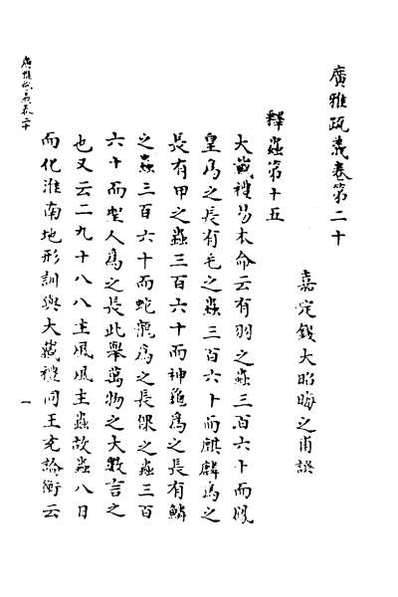 廣雅疏義卷第二十
嘉定錢大昭晦之甫譔
釋蟲第十五
大戴禮易本命云有羽之蟲三百六十而鳳
皇爲之長有毛之蟲三百六十而麒麟爲之
長有甲之蟲三百六十而神龜爲之長有鱗
之蟲三百六十而蛇龍爲之長倮之蟲三百
六十而聖人爲之長此舉萬物之大數言之
也又云二九十八八主風風主蟲故蟲八日
而化淮南地形訓與大戴禮同王充論衡云
廣雅疏義卷二十
一